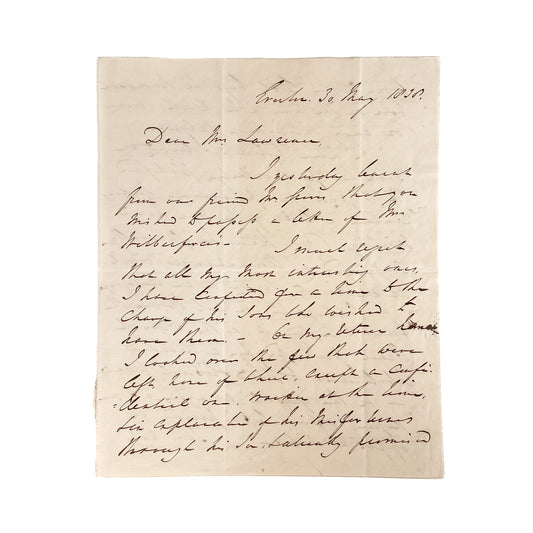 30 May 1838.
Dear Mrs Lawrence,
I yesterday learnt
from our friend Mr that you
wished to possess a letter of Mr
Wilberforce's - I much regret
that all my most interesting ones,
I have confided for a time to the
charge of his Sons who wished to
have them - On my return home
I looked over the few that were
left none of these, except a confi
-dential one, written at the time,
in explanation of his misfortunes
through his Son, &